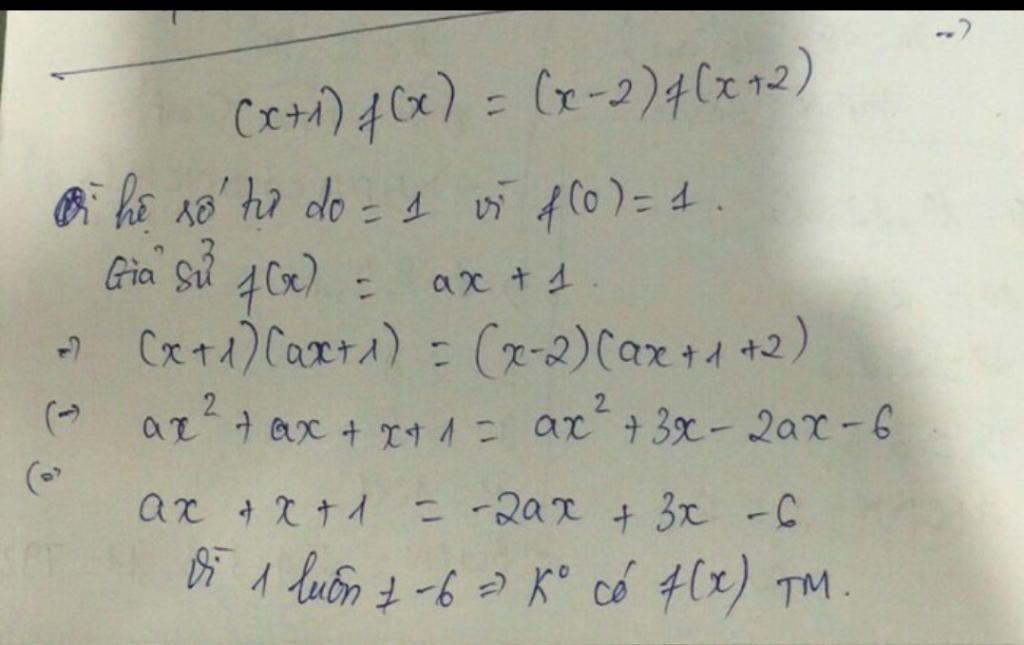 (x+1) f(x) = (x-2) f(x+2)
Vì hệ số tự do = 1 vì f(0) = 1.
Giả sử f(x) = ax + 1.
=> (x+1)(ax+1) = (x-2)(ax+1+2)
(=> ax² + ax + x+1 = ax² + 3x - 2ax - 6
(=> ax + x + 1 = -2ax + 3x - 6
Vì 1 luôn ≠ -6 => K° có f(x) TM.